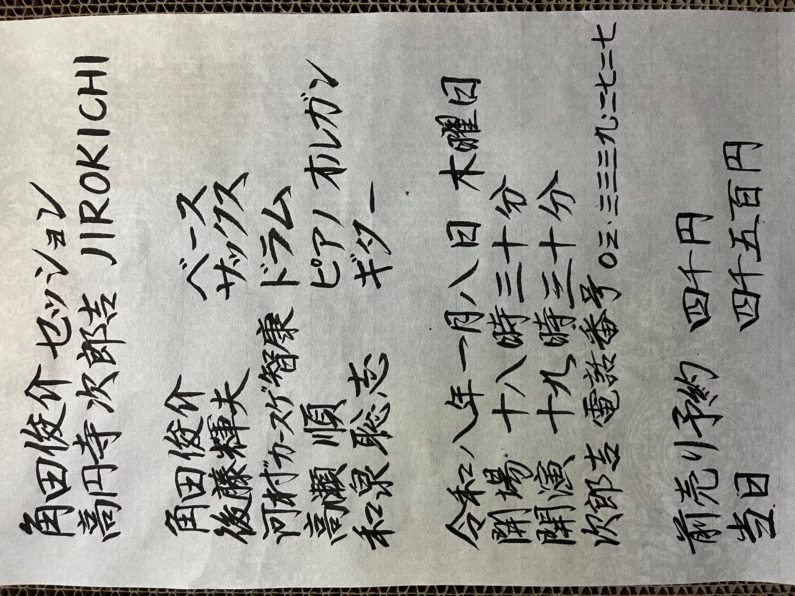 角田俊介 セッション
高円寺 次郎吉 JIROKICHI
角田俊介 ベース
後藤輝夫 サックス
河村"カースケ"智康 ドラム
高瀬 順 ピアノ オルガン
和泉聡志 ギター
令和八年一月八日 木曜日
開場 十八時三十分
開演 十九時三十分
次郎吉 電話番号 〇三.三三三九.二七二七
前売り予約 四千円
当日 四千五百円